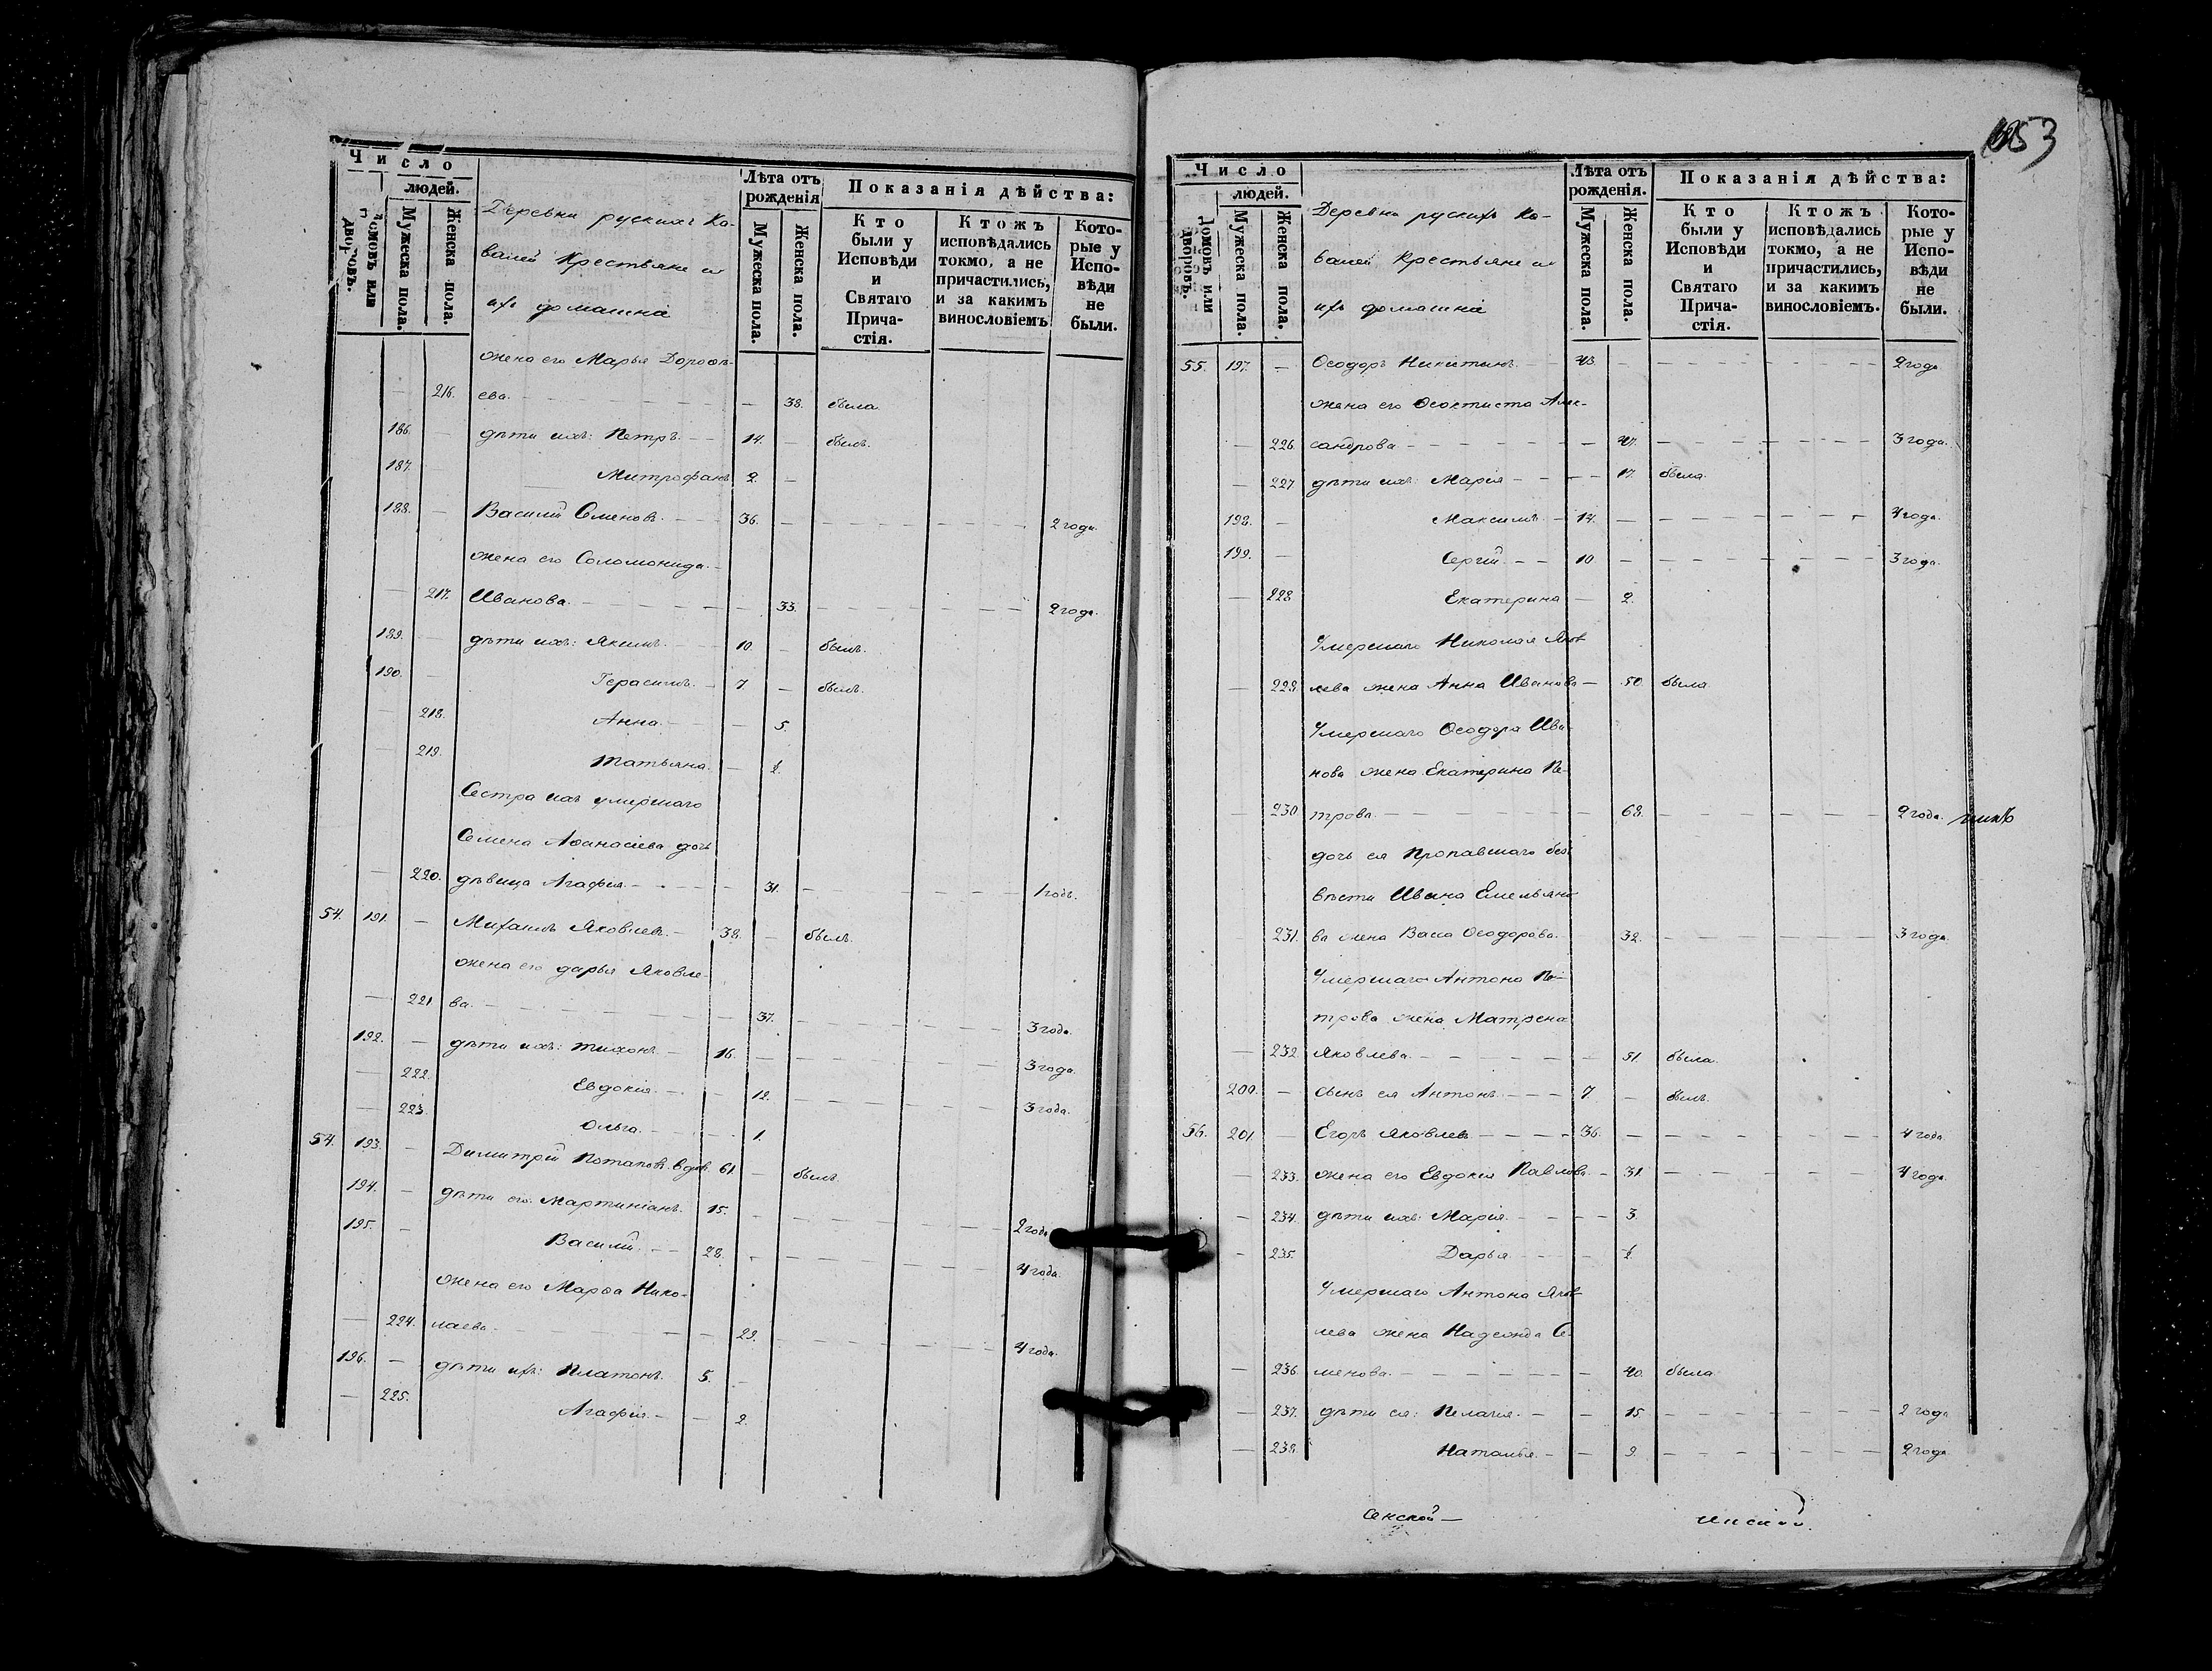 Число
людей.
Домовъ или дворовъ.
Мужеска пола.
Женска пола.
Деревни рускихъ Ко-
валей Крестьяне и
ихъ домашнiе
Лѣта отъ рожденiя
Мужеска пола.
Женска пола.
Показанiя дѣйства:
Кто были у Исповѣди и Святаго Прича-стiя.
Ктожъ исповѣдались токмо, а не причастились, и за какимъ винословiемъ
Кото-рые у Испо-вѣди не были.
жена его Марья Дорофѣ-
— 216. ева. — 38. была
186. — дѣти ихъ: Петръ. — 14. — былъ.
187. — Митрофанъ 2. —
188. — Василiй Семеновъ. — 36. — 2 года.
жена его Соломонида
— 217. Иванова. — 33. — 2 года.
189. — дѣти ихъ: Якимъ. — 10. — былъ.
190. — Герасимъ. — 7. — былъ.
— 218. Анна. — 5.
— 219. Татьяна. — ½.
Сестра ихъ умершаго
Семена Аѳанасiева дочь
— 220. дѣвица Агафiя. — 31. — 1 годъ.
54. 191. — Михаилъ Яковлевъ. — 38. — былъ.
жена его дарья Яковле-
— 221 ва. — 37. — 3 года.
192. — дѣти ихъ: тихонъ. — 16. — 3 года.
— 222. Евдокiя. — 12. — 3 года.
— 223. Ольга. — 1.
54. 193. — Димитрiй Потаповъ. вдов. 61 — былъ.
194. — дѣти его: Мартинiанъ. 15. — 2 года
195. — Василiй. — 28. — 4 года.
жена его Марѳа Нико-
— 224. лаева. — 29. — 4 года.
196. — дѣти ихъ: Платонъ. 5. —
— 225. Агафiя. — 2.
53
Число
людей.
Домовъ или дворовъ.
Мужеска пола.
Женска пола.
Деревни рускихъ Ко-
валей Крестьяне и
ихъ домашнiе
Лѣта отъ рожденiя.
Мужеска пола.
Женска пола.
Показанiя дѣйства:
Кто были у Исповѣди и Святаго Прича-стiя.
Ктожъ исповѣдались токмо, а не причастились, и за какимъ винословiемъ.
Кото-рые у Испо-вѣди не были.
55. 197. — Ѳеодоръ Никитинъ. — 43. — 2 года
жена его Ѳеоктиста Алек-
— 226. сандрова — 2 — 3 года.
— 227 дѣти ихъ: Марiя — 17. была.
198. — Максимъ. — 14. — 4 года.
199. — Сергiй. — 10 — 3 года.
— 228 Екатерина — 2.
Умершаго Николая Яков
— 229. лева жена Анна Иванова — 50. была
Умершаго Ѳеодора Ива-
нова жена Екатерина Пе-
— 230 трова. — 68. — 2 года.
дочь ея Пропавшаго безъ
вѣсти Ивана Емельяно-
— 231. ва жена Васа Ѳеодорова. 32. — 3 года.
Умершаго Антона Пе-
трова жена Матрена
— 232. Яковлева. — 51. была.
200. — сынъ ея Антонъ. — 7 — былъ.
56. 201. — Егоръ Яковлевъ. — 36. — 4 года
— 233. жена его Евдокiя Павлова. — 31. — 4 года.
— 234. дѣти ихъ: Марiя. — 3.
— 235. Дарья — ½.
Умершаго Антона Яков-
лева жена Надежда Се-
— 236 менова. — 40. была.
— 237. дѣти ея: Пелагiя. — 15. — 2 года
— 238. Наталья. — 9. — 2 года